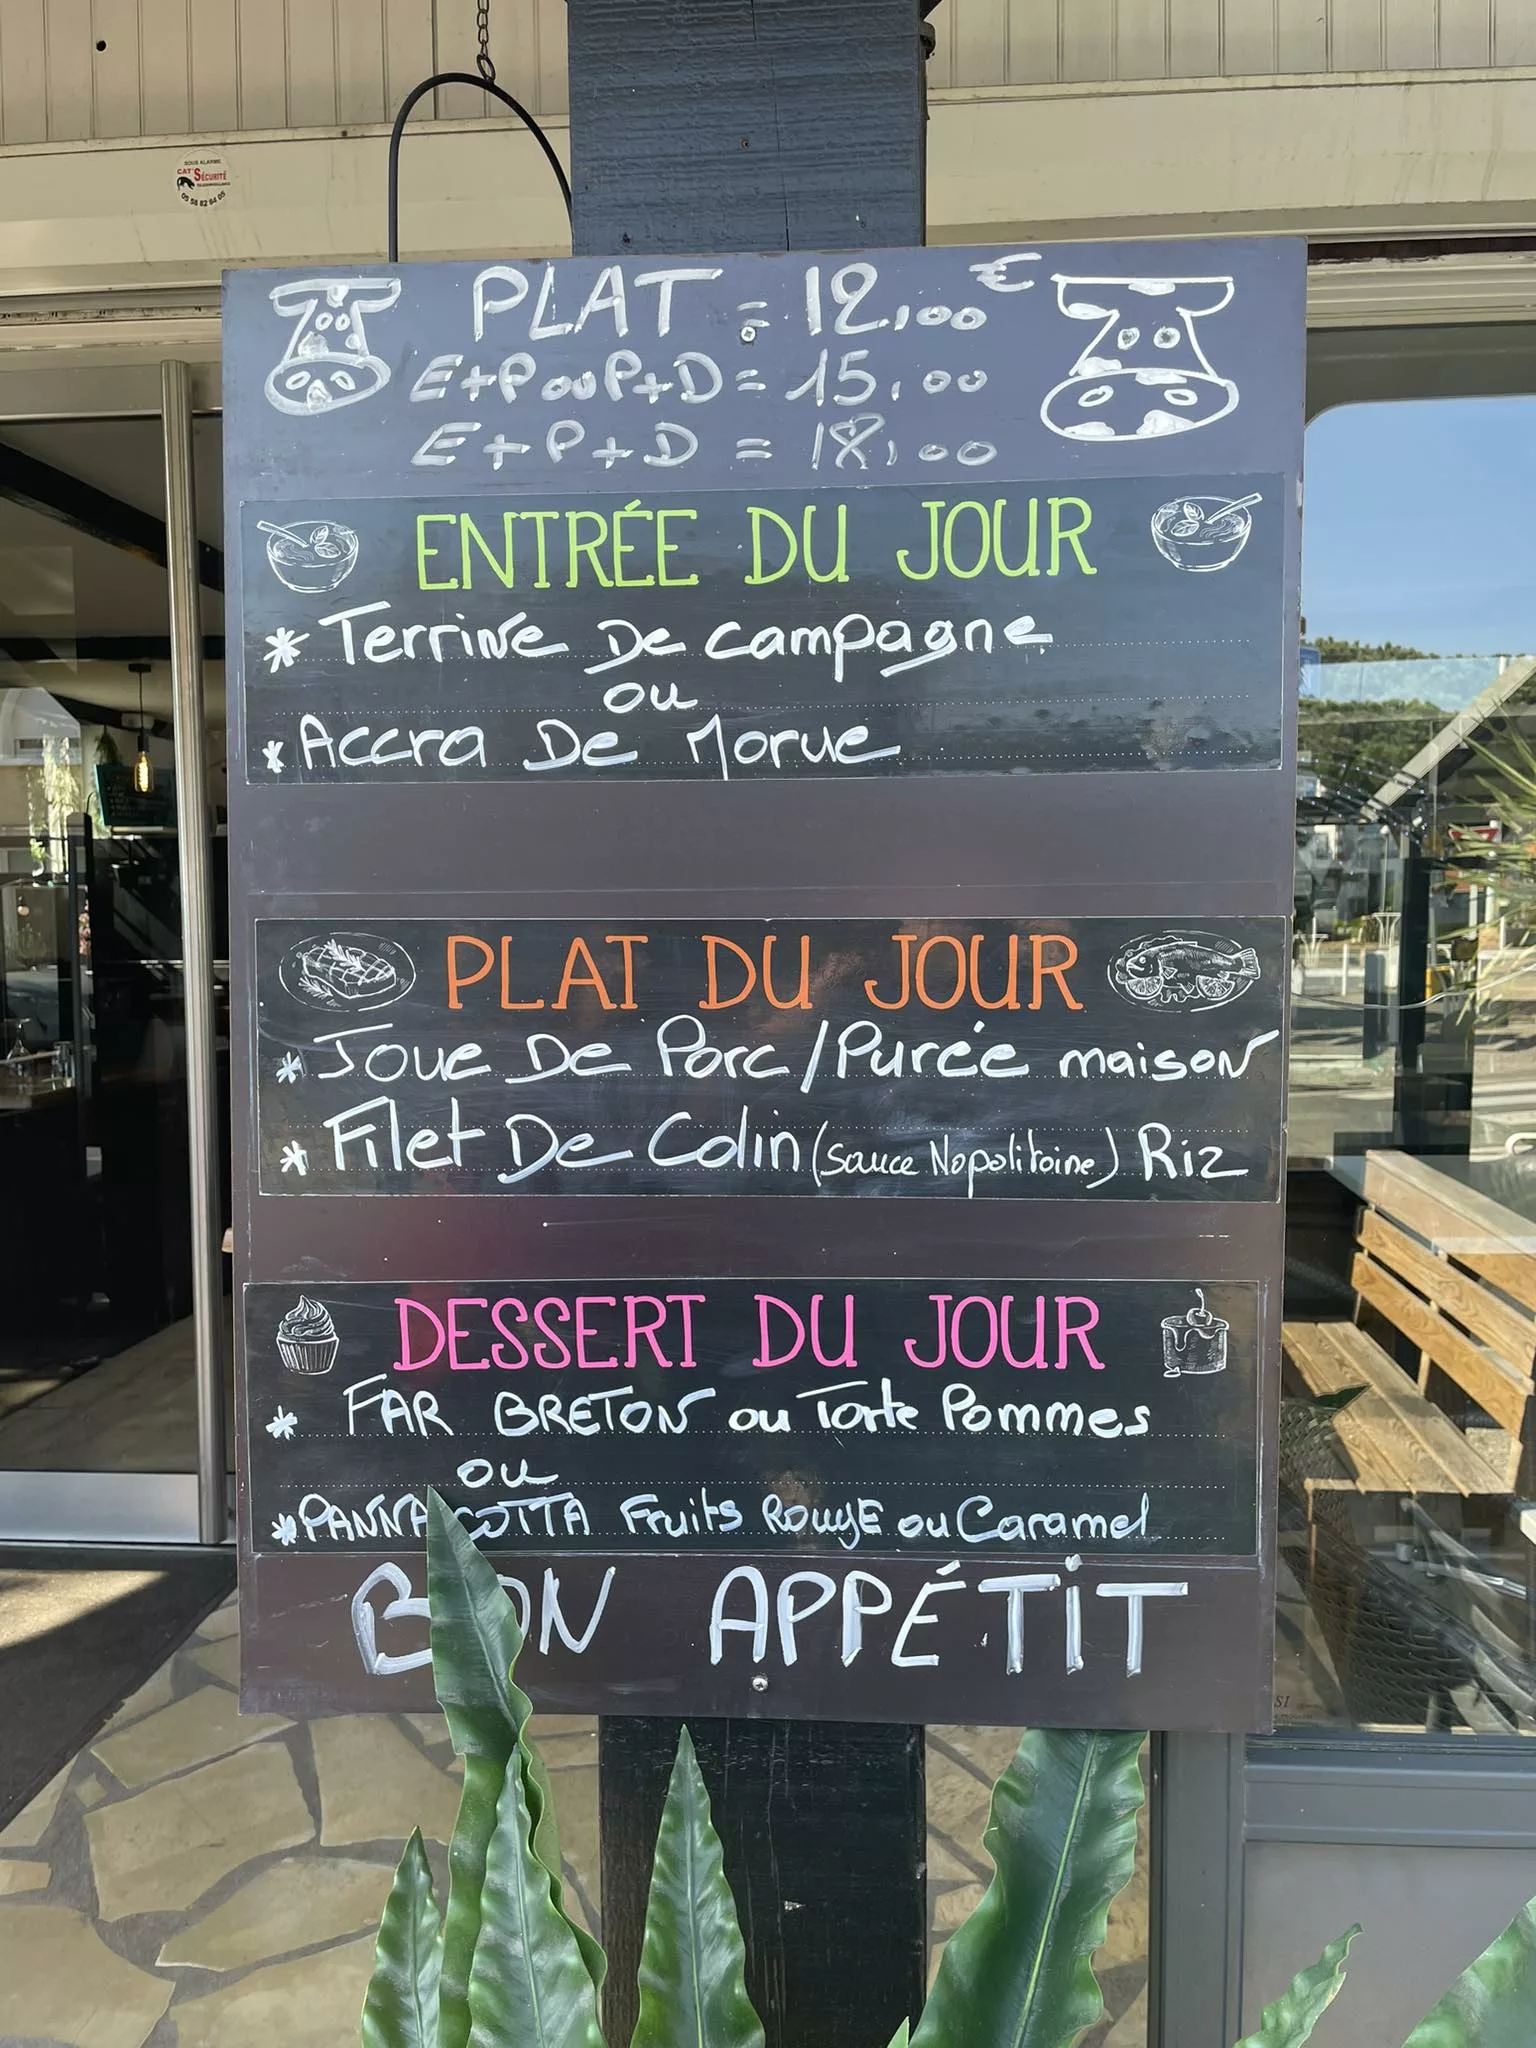 SOUS ALARME
CAT'SÉCURITÉ
TÉLÉSURVEILLANCE
05 58 82 64 05
PLAT = 12,00 €
E+P ou P+D = 15,00
E+P+D = 18,00
ENTRÉE DU JOUR
* Terrine De campagne
ou
* Accra De Morue
PLAT DU JOUR
* Joue De Porc / Purée maison
* Filet De Colin (sauce Napolitaine) Riz
DESSERT DU JOUR
* FAR BRETON ou Tarte Pommes
ou
* PANNA COTTA Fruits ROUGE ou Caramel
BON APPÉTIT